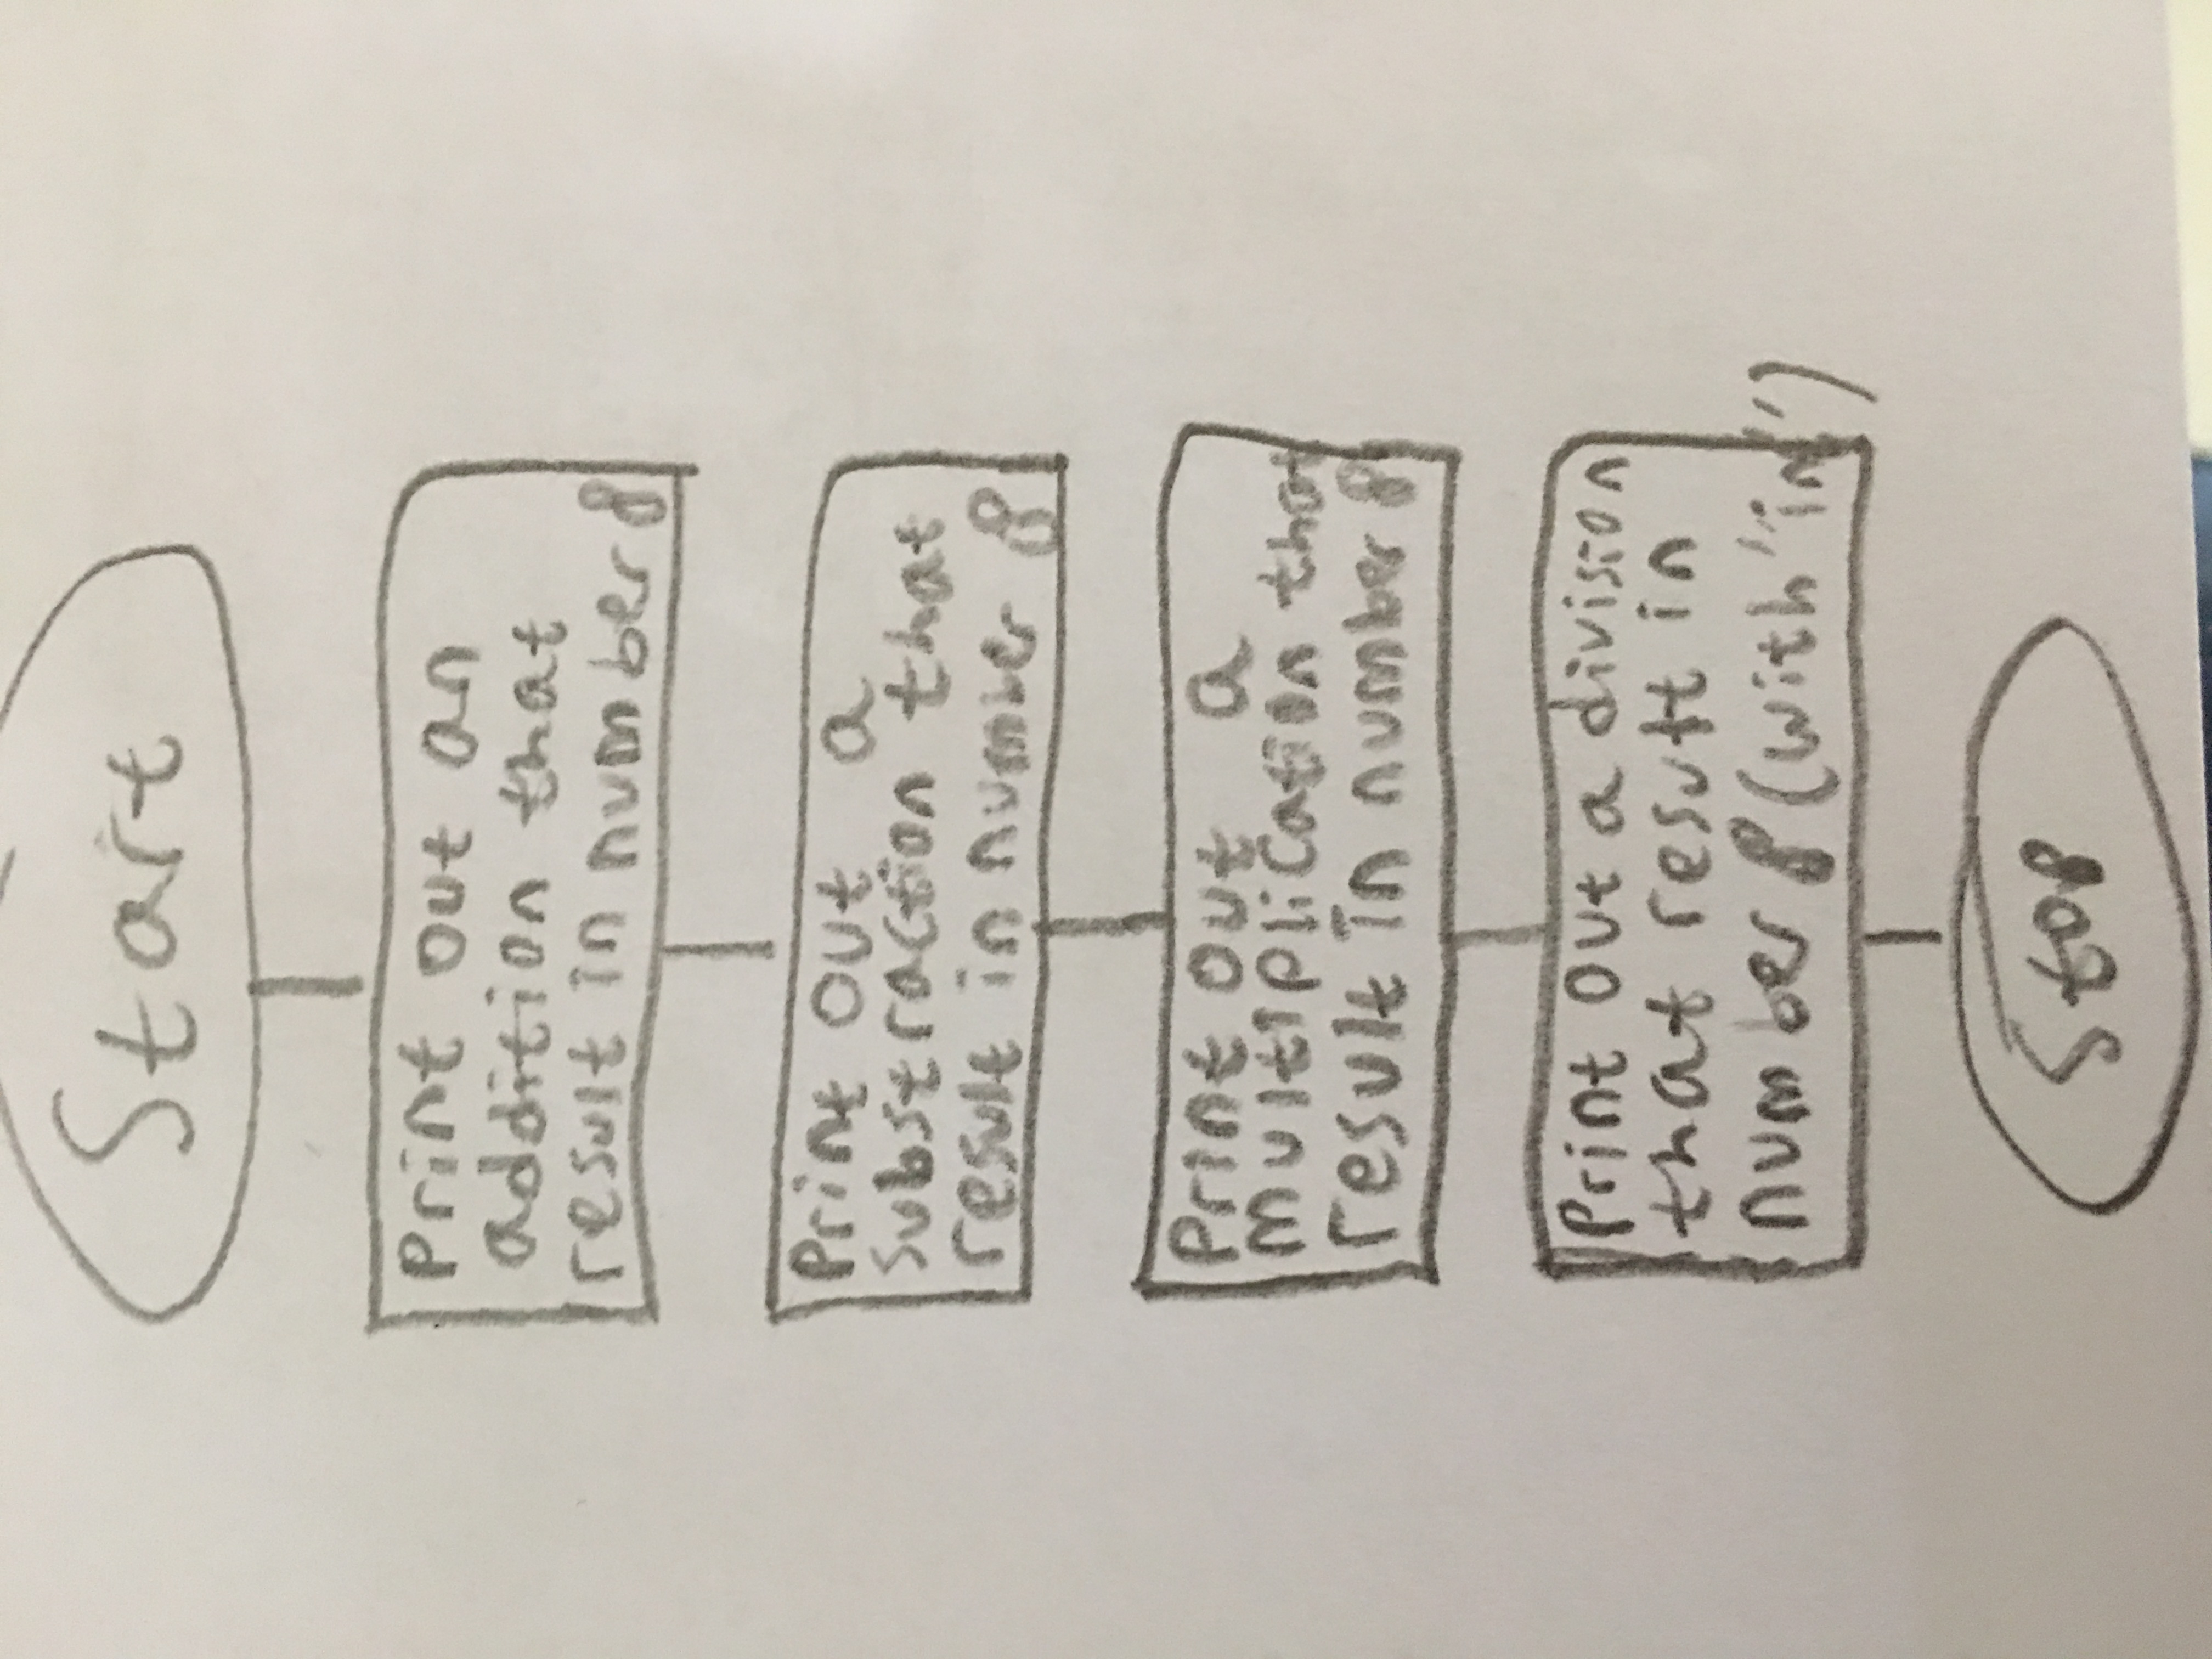 Start
Print out an
addition that
result in number 8
Print out a
substraction that
result in number 8
Print out a
multiplication that
result in number 8
Print out a division
that result in
number 8 (with "in")
Stop